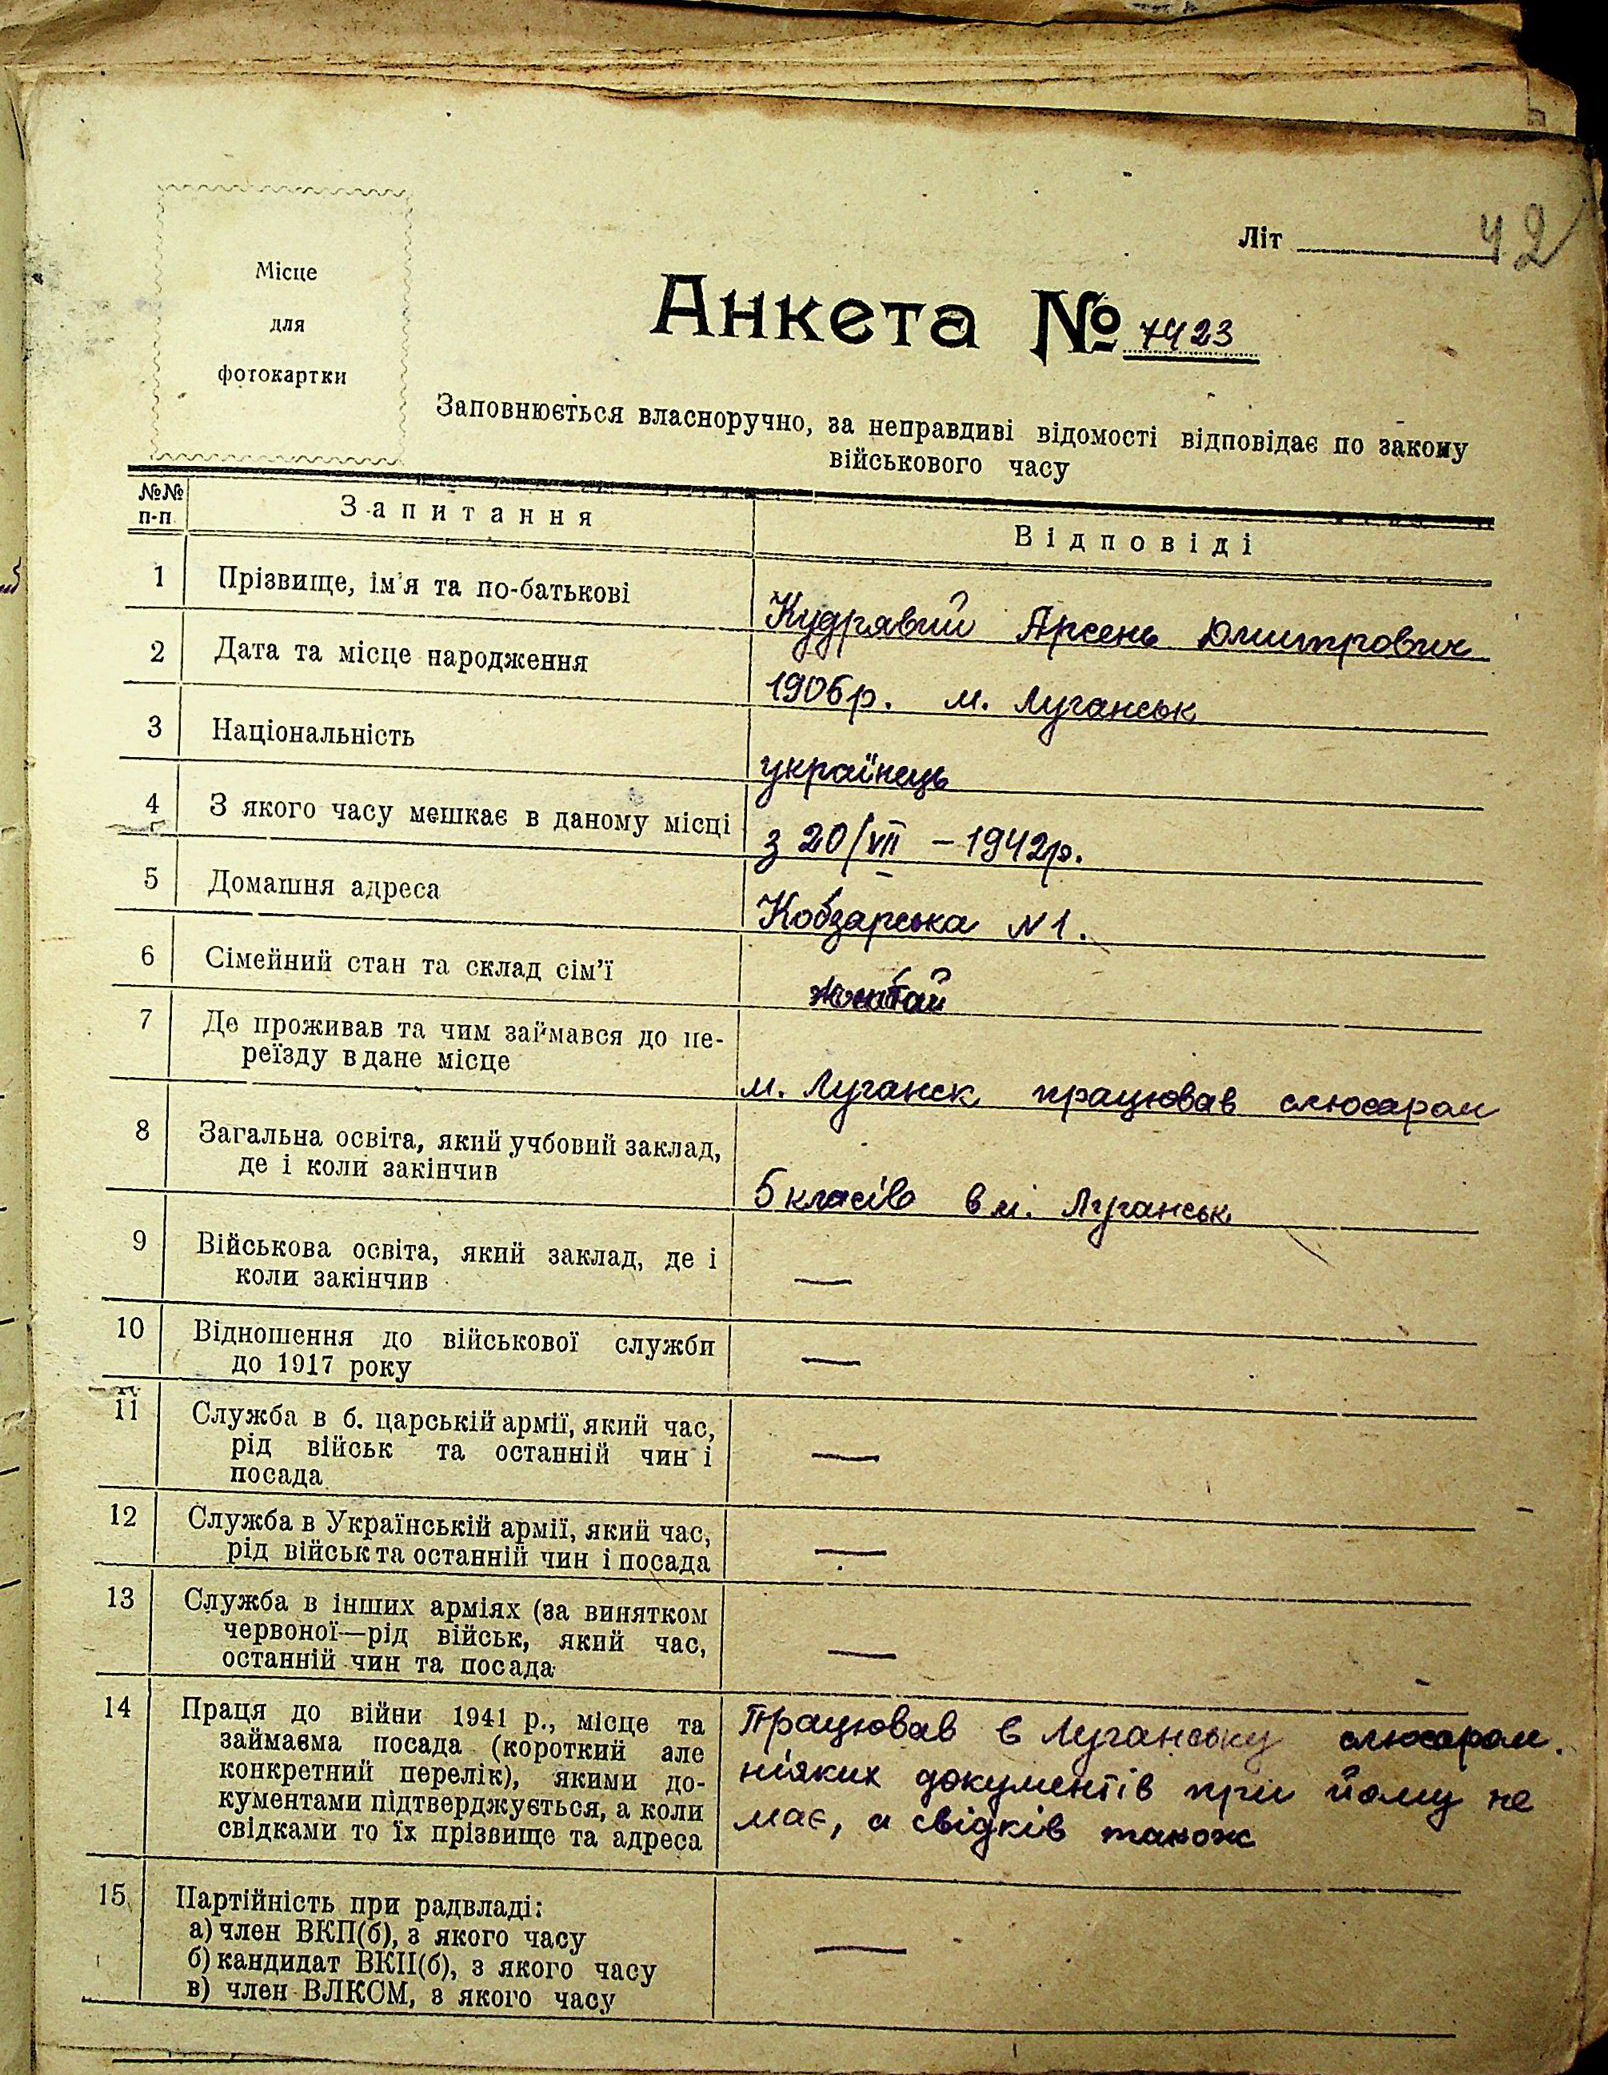 Літ 42
Місце
для
фотокартки
Анкета № 7423
Заповнюється власноручно, за неправдиві відомості відповідає по закону
військового часу
№№
п-п
Запитання
Відповіді
1 Прізвище, ім'я та по-батькові
Кудрявий Арсень Дмитрович
2 Дата та місце народження
1906р. м. Луганськ
3 Національність
українець
4 З якого часу мешкає в даному місці
з 20/VII – 1942р.
5 Домашня адреса
Кобзарська N 1.
6 Сімейний стан та склад сім'ї
жонатай
7 Де проживав та чим займався до пе-
реїзду в дане місце
м. Луганск працював слюсаром
8 Загальна освіта, який учбовий заклад,
де і коли закінчив
5 класів в м. Луганськ
9 Військова освіта, який заклад, де і
коли закінчив
—
10 Відношення до військової служби
до 1917 року
—
11 Служба в б. царській армії, який час,
рід військ та останній чин і
посада
—
12 Служба в Українській армії, який час,
рід військ та останній чин і посада
—
13 Служба в інших арміях (за винятком
червоної—рід військ, який час,
останній чин та посада
—
14 Праця до війни 1941 р., місце та
займаєма посада (короткий але
конкретний перелік), якими до-
кументами підтверджується, а коли
свідками то їх прізвище та адреса
Працював в Луганську слюсаром.
ніяких документів при йому не
має, а свідків також
15 Партійність при радвладі:
а) член ВКП(б), з якого часу
б) кандидат ВКП(б), з якого часу
в) член ВЛКСМ, з якого часу
—